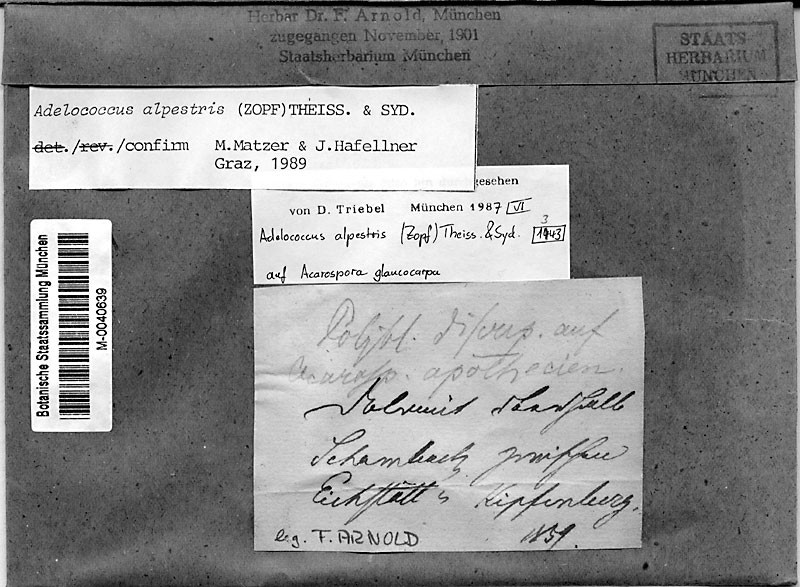 Herbar Dr. F. Arnold, München
zugegangen November, 1901
Staatsherbarium München
STAATS
HERBARIUM
MÜNCHEN
Adelococcus alpestris (ZOPF)THEISS. & SYD.
det./rev./confirm M.Matzer & J.Hafellner
Graz, 1989
gesehen
von D. Triebel München 1987 VI
Adelococcus alpestris (Zopf) Theiss. & Syd.
auf Acarospora glaucocarpa
Botanische Staatssammlung München
M-0040639
auf
apothecien.
Dolomit oberhalb
Schambach zwischen
Eichstätt u Kipfenberg.
1859.
leg. F. ARNOLD